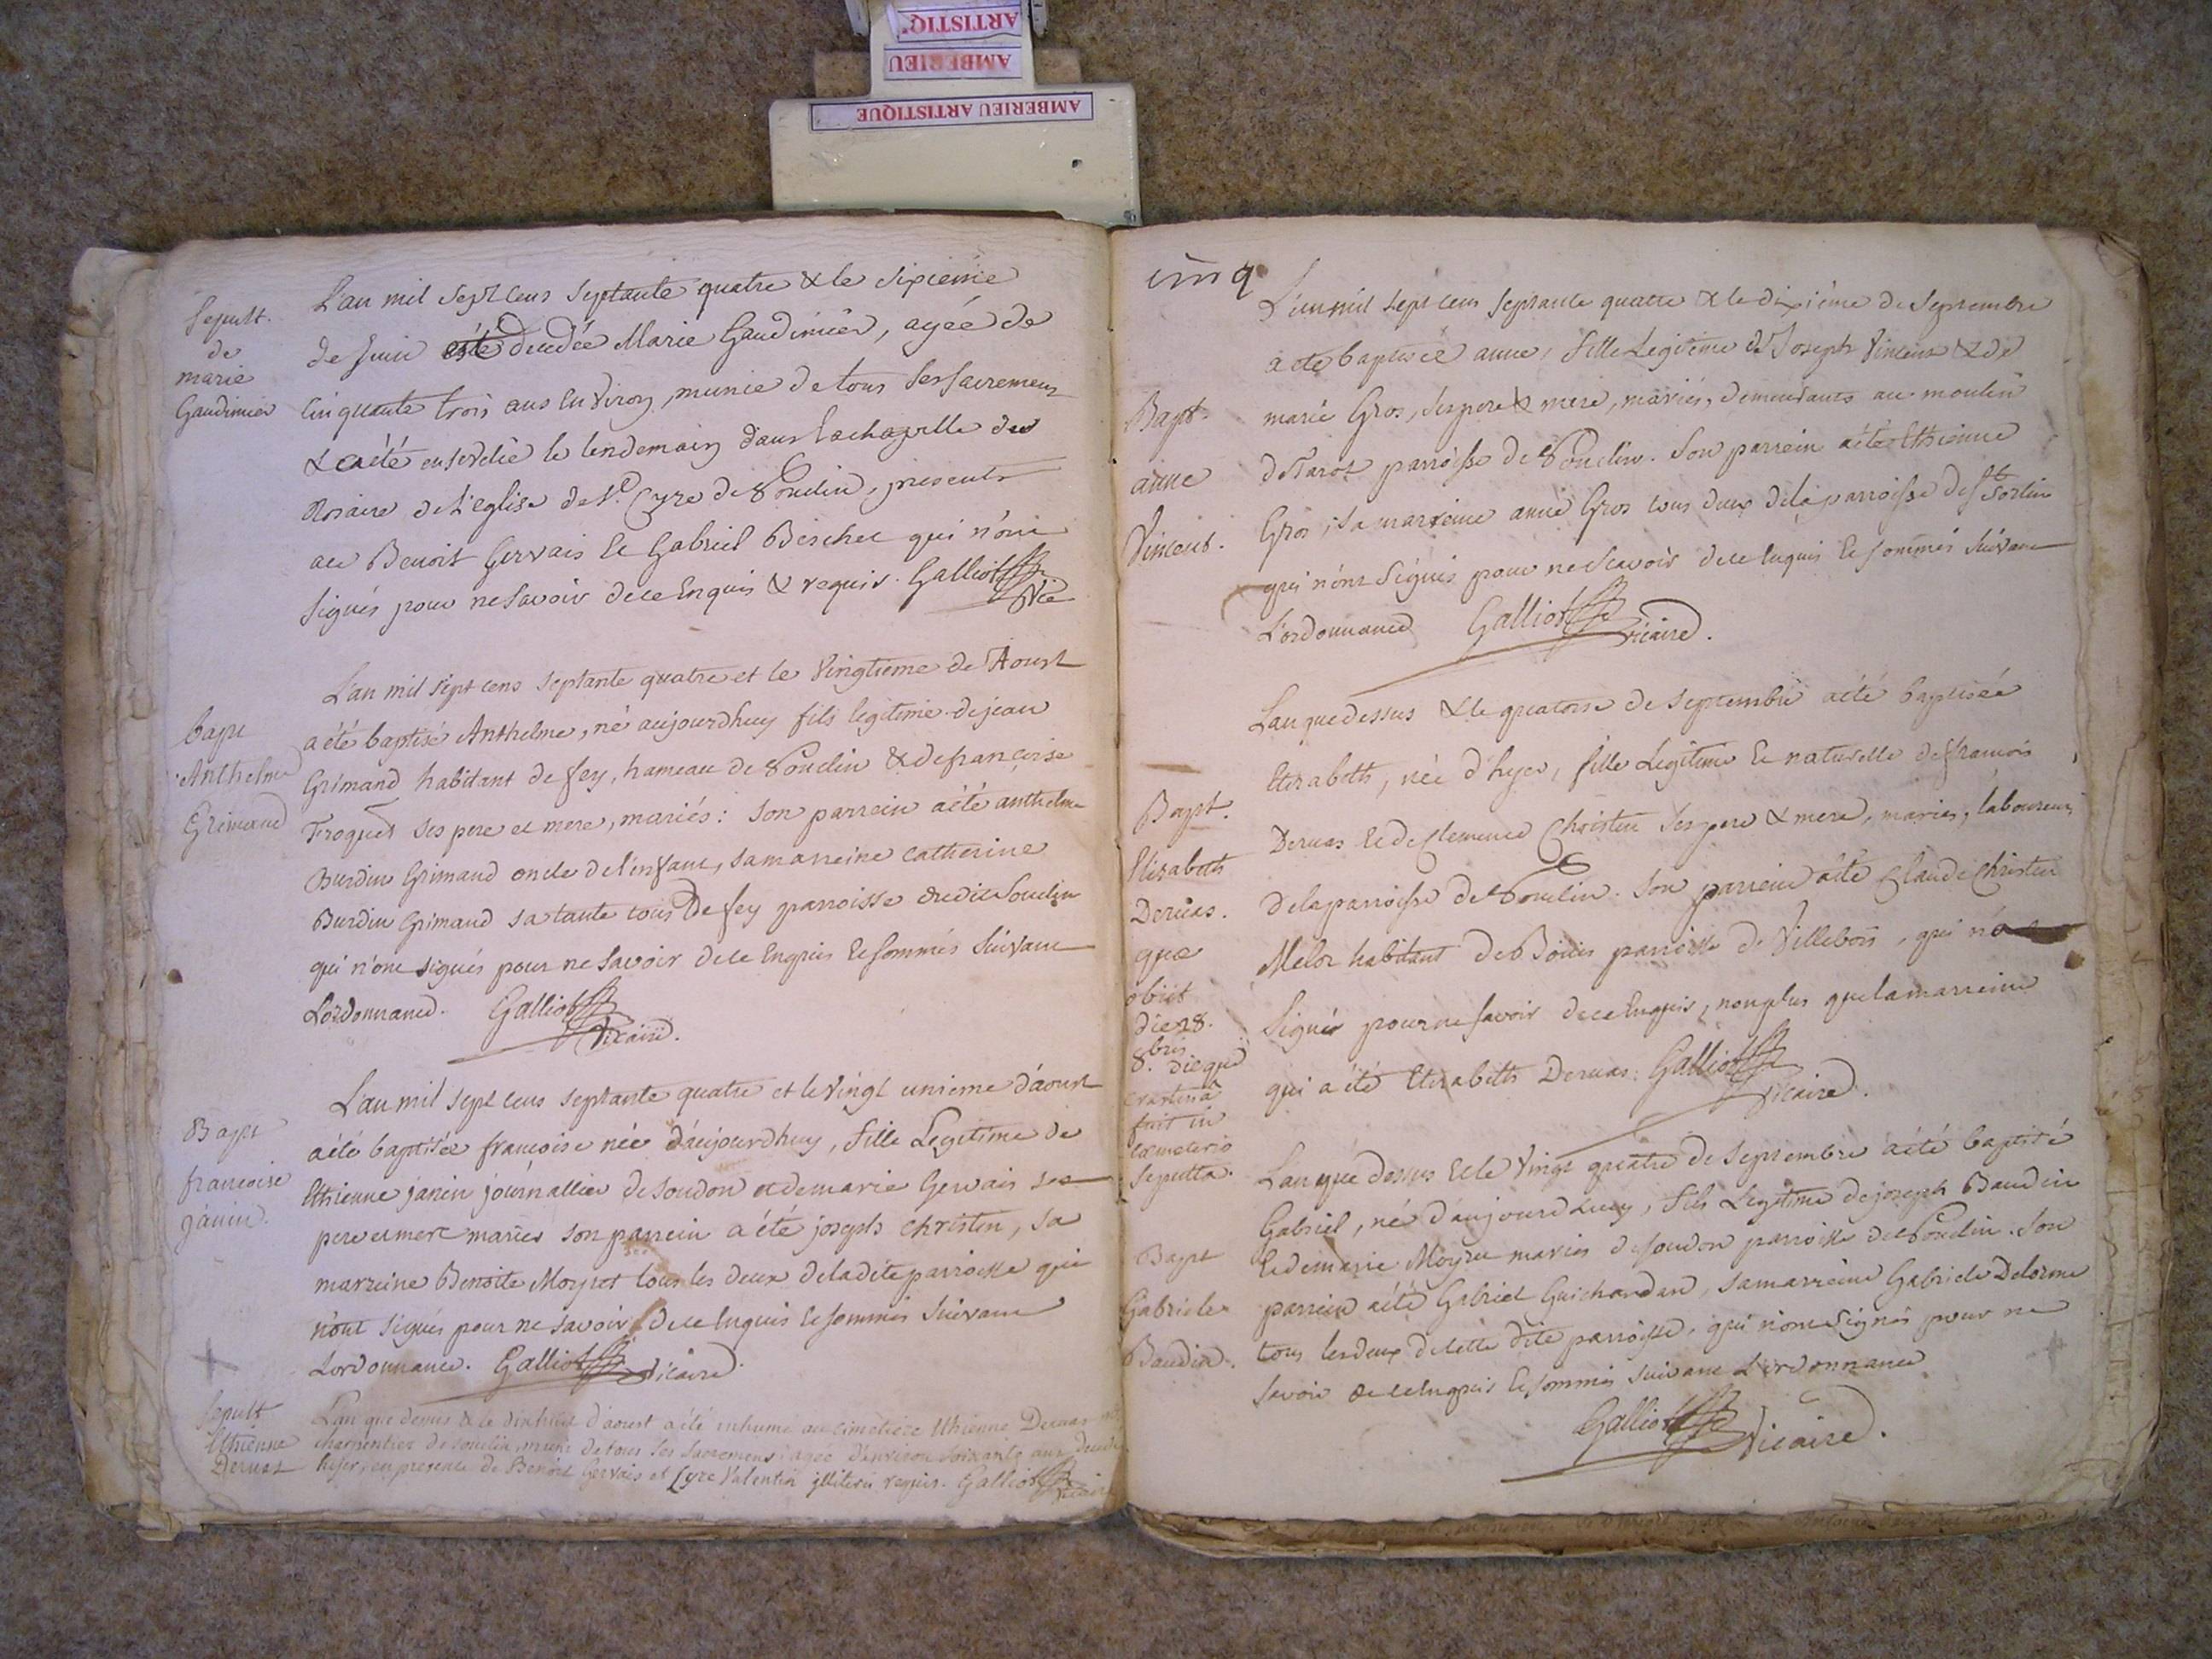 ARTISTIQ
AMBERIEU
AMBERIEU ARTISTIQUE
Sepult.
de
marie
Gaudimier
L'an mil sept cens septante quatre & le sixieme
de Juin est decedée Marie Gaudimier, agée de
cinquante trois ans environ, munie de tous ses sacremens
& a été ensevelie le lendemain dans la chapelle du
Rosaire de l'eglise de St Cyre de Soudin, presents
Benoit Gervais et Gabriel qui n'ont
signés pour ne savoir de ce enquis & requis. Galliot
Vic
bapt
Anthelme
Grimand
L'an mil sept cens septante quatre et le vingtieme de Aoust
a été baptisé Anthelme, né aujourdhuy fils legitime de jean
Grimand habitant de fey, hameau de Soudin & de françoise
Froquet ses pere et mere, mariés: son parrein a été anthelme
Burdin Grimand oncle de l'enfant, sa marreine catherine
Burdin Grimand sa tante tous de fey parroisse dudit Soudin
qui n'ont signés pour ne savoir de ce enquis et sommés suivant
L'ordonnance. Galliot
Vicaire.
Bapt
francoise
janin.
L'an mil sept cens septante quatre et le vingt unieme d'aoust
a été baptisée françoise née d'aujourdhuy, fille Legitime de
Ethienne janin journallier de soudon et de marie Gervais ses
pere et mere mariés son parrein a été joseph christin, sa
marreine Benoite Moyret tous les deux de la dite parroisse qui
n'ont signés pour ne savoir de ce enquis et sommés suivant
L'ordonnance. Galliot Vicaire
Sepult
Ethienne
Dervas
L'an que dessus & le d'aoust a été inhumé au cimetiere Ethienne Dervas
charpentier de soudin, muni de tous ses sacremens agée d'environ soixante ans decedé
hyer, en presence de Benoit Gervais et Cyre Valentin illiterés requis. Galliot
Vicaire
cinq
Bapt.
anne
Vincent.
L'an mil sept cens septante quatre & le dixième de Septembre
a été baptisée anne, fille Legitime de Joseph Vincent & de
marie Gros, ses pere & mere, mariés, demeurants au moulin
de Tarot parroisse de Soudin. Son parrein a été Ethienne
Gros, sa marreine anne Gros tous deux de la parroisse de St Sorlin
qui n'ont signés pour ne scavoir de ce enquis et sommés suivant
L'ordonnance Galliot
vicaire.
Bapt.
Elizabeth
Dervas.
quae
obiit
die 28.
8bris. dieque
crastina
fuit in
cemeterio
sepulta.
L'an que dessus & le quatorse de septembre a été baptisée
Elizabeth, née d'hyer, fille Legitime et naturelle de francois
Dervas et de Clemence Christin ses pere & mere, mariés, laboureurs
de la parroisse de Soudin. Son parrein a été Claude Christin
Melor habitant de Bouis parroisse de Villebois, qui n'a
signés pour ne savoir de ce enquis, non plus que la marreine
qui a été Elizabeth Dervas. Galliot
Vicaire.
Bapt
Gabriele
Baudin.
L'an que dessus et le vingt quatre de septembre a été baptisé
Gabriel, né d'aujourdhuy, fils Legitime de joseph Baudin
et de marie Moyne mariés de soudon parroisse de Soudin. Son
parrein a été Gabriel Guichandan, sa marreine Gabriele Delorme
tous les deux de cette dite parroisse, qui n'ont signés pour ne
savoir de ce enquis et sommés suivant L'ordonnance
Galliot
Vicaire.